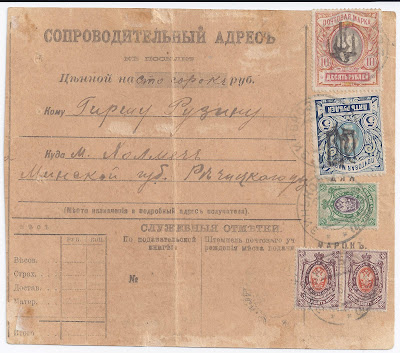 СОПРОВОДИТЕЛЬНЫЙ АДРЕСЪ
КЪ ПОСЫЛКѢ
Цѣнной на сто сорокъ руб.
Кому Гиршу Рузину
Куда м. Холмечь
Минской губ. Рѣчицкого у
(Мѣсто назначенія и подробный адресъ получателя).
СЛУЖЕБНЫЯ ОТМѢТКИ.
РУБ. КОП.
По подавательской книгѣ.
Штемпель почтоваго учрежденія мѣста подачи
№
Вѣсов.
Страх.
Достав.
Итого
ПОЧТОВАЯ МАРКА
10 10
ДЕСЯТЬ РУБЛЕЙ
ПЯТЬ РУБЛЕЙ
ПОЧТОВАЯ МАРКА
5
ДЛЯ
МАРОКЪ.